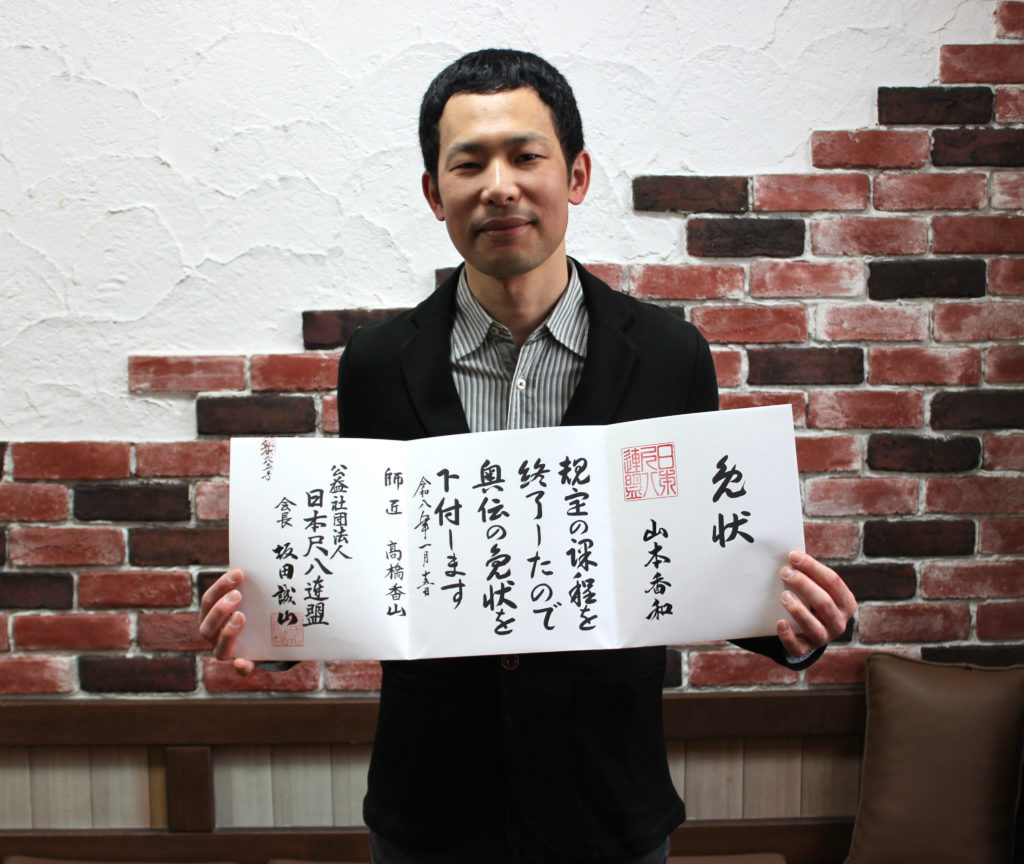 免状
山本香和
日東
尺八
連盟
規定の課程を
終了したので
奥伝の免状を
下付します
令和八年一月十五日
師匠 高橋香山
公益社団法人
日本尺八連盟
会長 坂田誠山